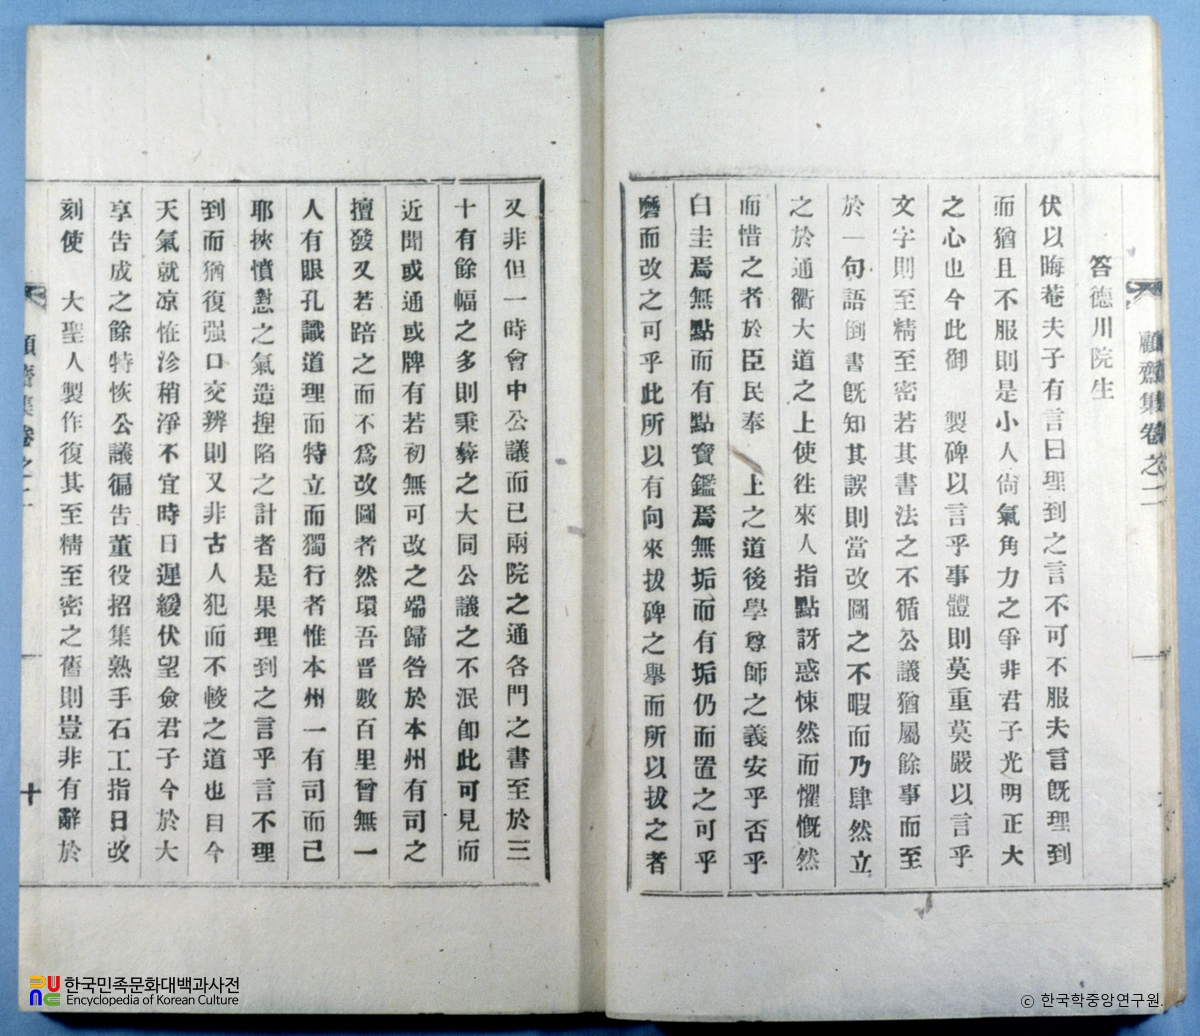 顧齋集卷之二
答德川院生
伏以晦菴夫子有言曰理到之言不可不服夫言旣理到
而猶且不服則是小人尙氣角力之爭非君子光明正大
之心也今此御 製碑以言乎事體則莫重莫嚴以言乎
文字則至精至密若其書法之不循公議猶屬餘事而至
於一句語倒書旣知其誤則當改圖之不暇而乃肆然立
之於通衢大道之上使徃來人指點訝惑悚然而懼慨然
而惜之者於臣民奉 上之道後學尊師之義安乎否乎
白圭焉無點而有點寶鑑焉無垢而有垢仍而置之可乎
磨而改之可乎此所以有向來拔碑之擧而所以拔之者
又非但一時會中公議而已兩院之通各門之書至於三
十有餘幅之多則秉彝之大同公議之不泯卽此可見而
近聞或通或牌有若初無可改之端歸咎於本州有司之
擅發又若踣之而不爲改圖者然環吾晋數百里曾無一
人有眼孔識道理而特立而獨行者惟本州一有司而已
耶挾憤懟之氣造揑陷之計者是果理到之言乎言不理
到而猶復强口交辨則又非古人犯而不較之道也目今
天氣就凉恠沴稍淨不宜時日遲緩伏望僉君子今於大
享告成之餘特恢公議徧告董役招集熟手石工指日改
刻使 大聖人製作復其至精至密之舊則豈非有辭於
顧齋集卷之二
十
한국민족문화대백과사전
Encyclopedia of Korean Culture
ⓒ 한국학중앙연구원